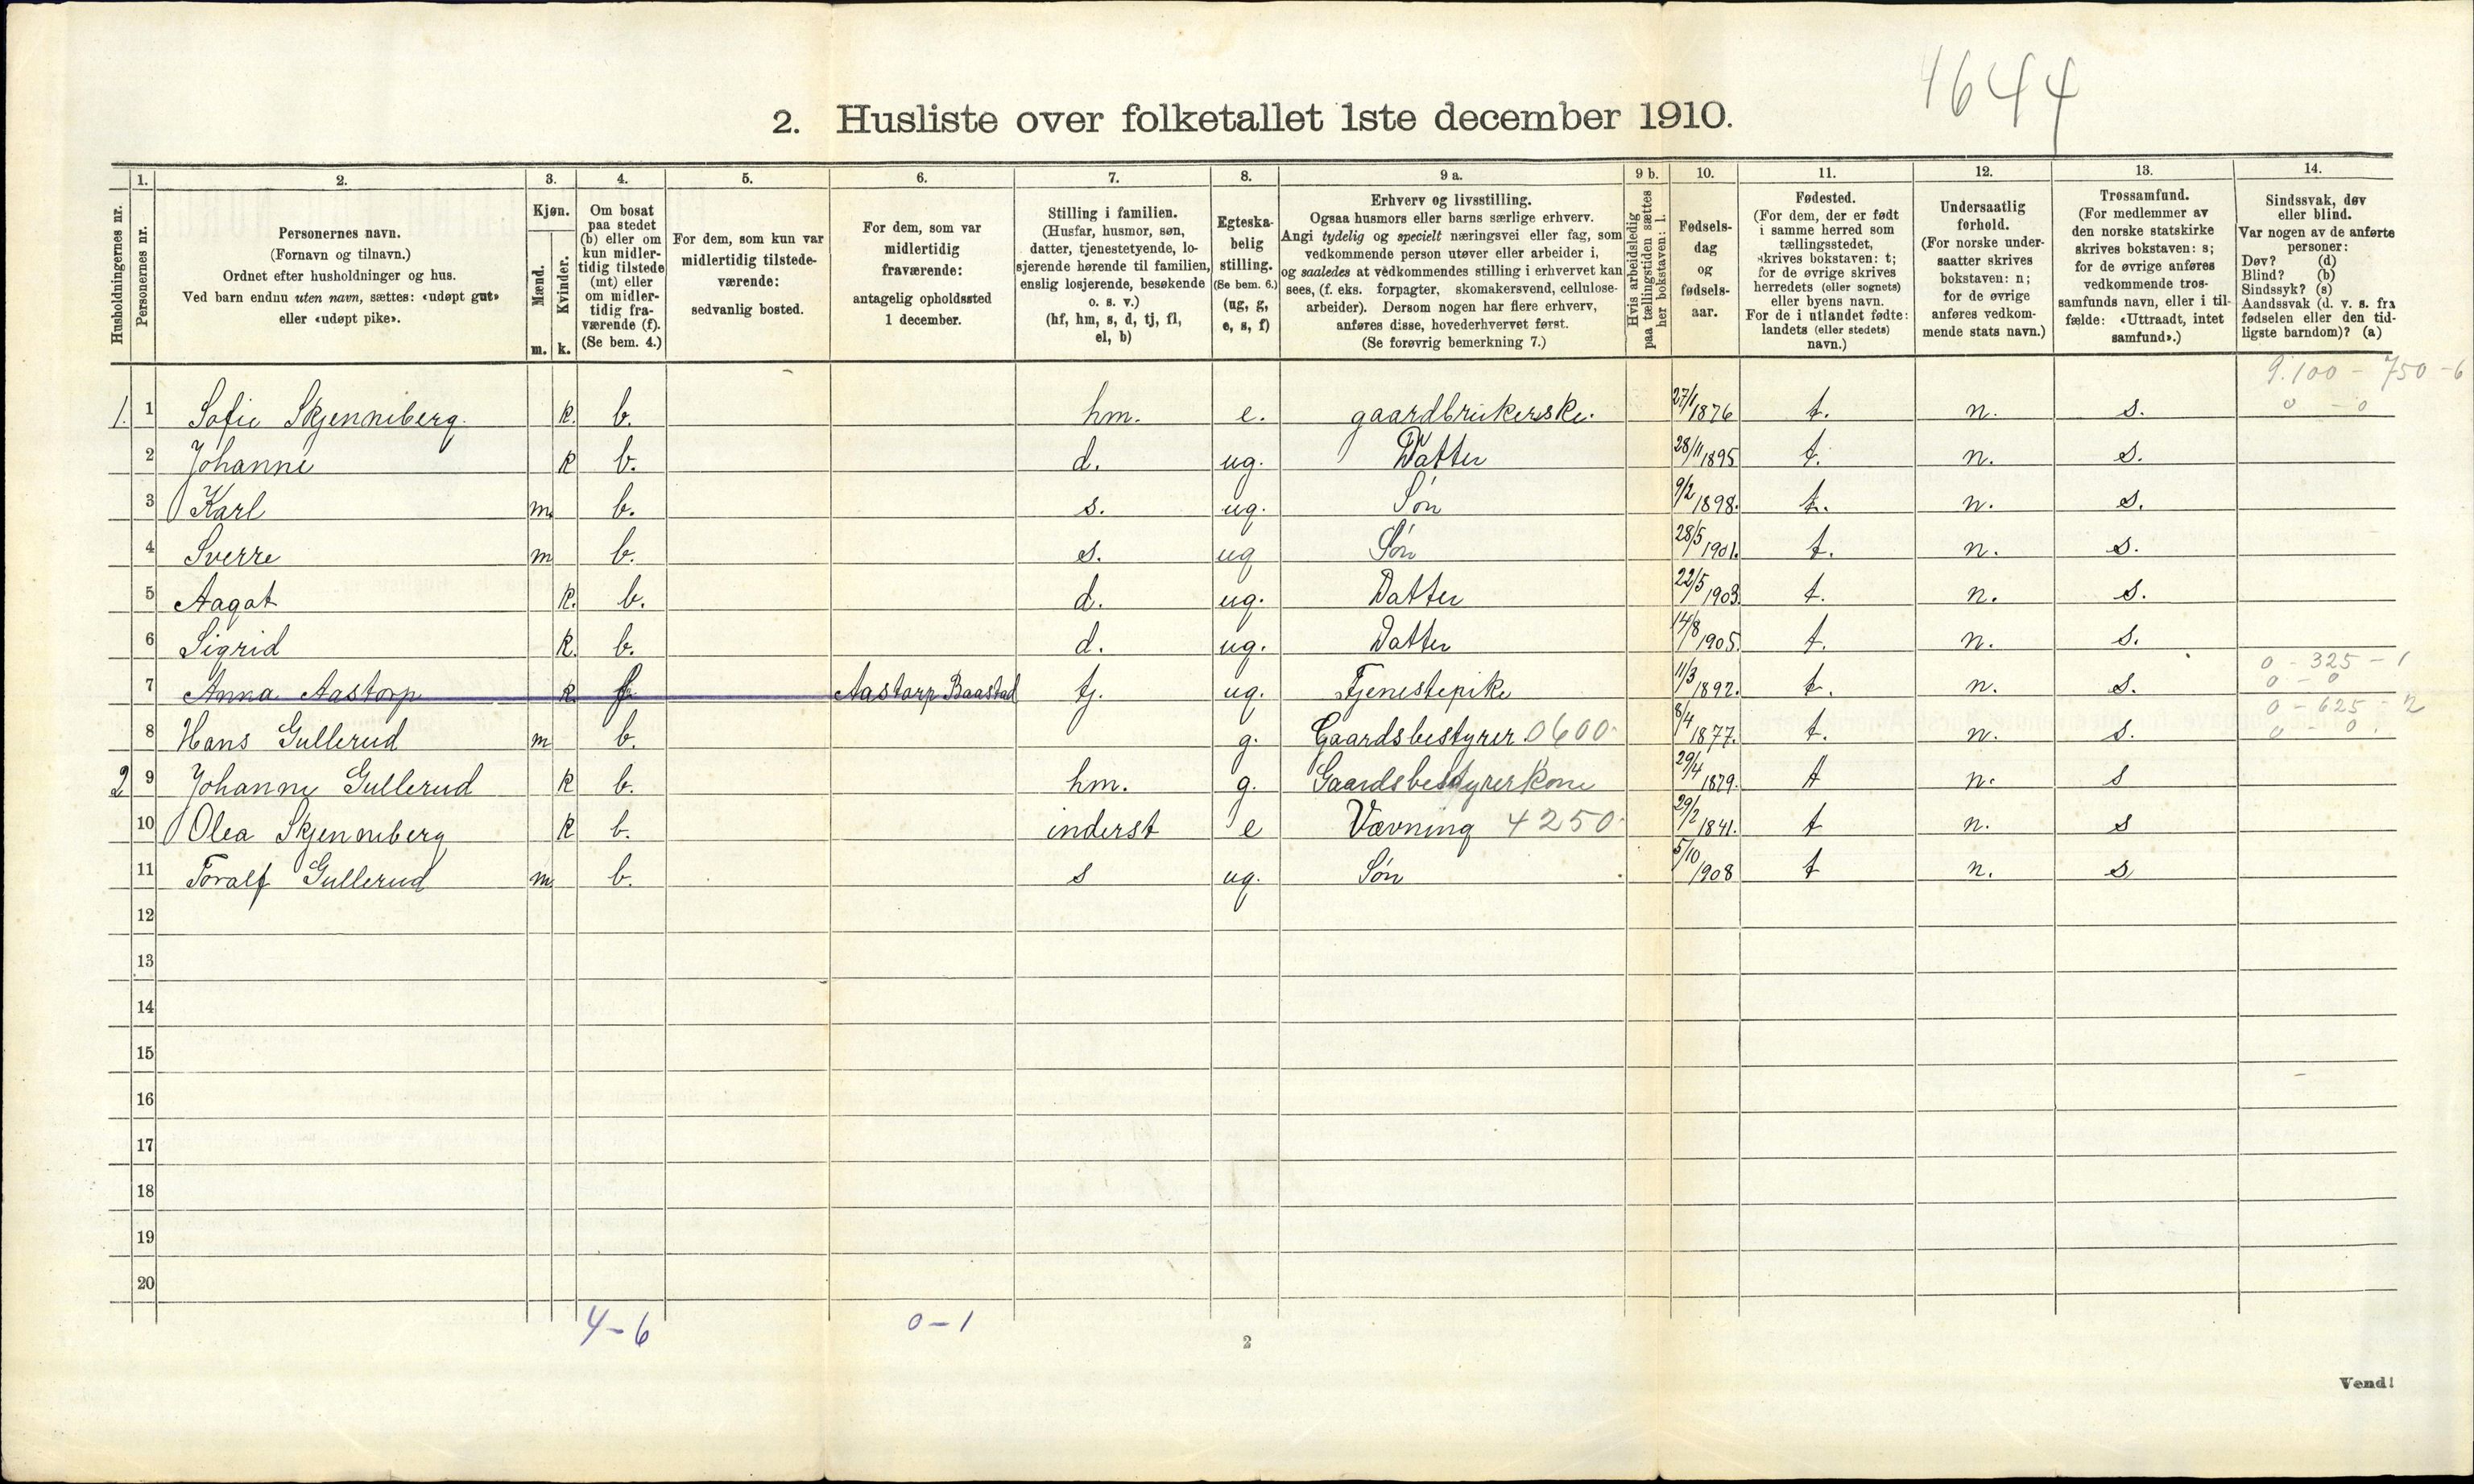 4644
2. Husliste over folketallet 1ste december 1910.
Husholdningernes nr.
1.
Personernes nr.
2.
Personernes navn.
(Fornavn og tilnavn.)
Ordnet efter husholdninger og hus.
Ved barn endnu uten navn, sættes: «udøpt gut»
eller «udøpt pike».
3.
Kjøn.
Mænd.
Kvinder.
m. k.
4.
Om bosat
paa stedet
(b) eller om
kun midler-
tidig tilstede
(mt) eller
om midler-
tidig fra-
værende (f).
(Se bem. 4.)
5.
For dem, som kun var
midlertidig tilstede-
værende:
sedvanlig bosted.
6.
For dem, som var
midlertidig
fraværende:
antagelig opholdssted
1 december.
7.
Stilling i familien.
(Husfar, husmor, søn,
datter, tjenestetyende, lo-
sjerende hørende til familien,
enslig losjerende, besøkende
o. s. v.)
(hf, hm, s, d, tj, fl,
el, b)
8.
Egteska-
belig
stilling.
(Se bem. 6.)
(ug, g,
e, s, f)
9 a.
Erhverv og livsstilling.
Ogsaa husmors eller barns særlige erhverv.
Angi tydelig og specielt næringsvei eller fag, som
vedkommende person utøver eller arbeider i,
og saaledes at vedkommendes stilling i erhvervet kan
sees, (f. eks. forpagter, skomakersvend, cellulose-
arbeider). Dersom nogen har flere erhverv,
anføres disse, hovederhvervet først.
(Se forøvrig bemerkning 7.)
9 b.
Hvis arbeidsledig
paa tællingstiden sættes
her bokstaven: l.
10.
Fødsels-
dag
og
fødsels-
aar.
11.
Fødested.
(For dem, der er født
i samme herred som
tællingsstedet,
skrives bokstaven: t;
for de øvrige skrives
herredets (eller sognets)
eller byens navn.
For de i utlandet fødte:
landets (eller stedets)
navn.)
12.
Undersaatlig
forhold.
(For norske under-
saatter skrives
bokstaven: n;
for de øvrige
anføres vedkom-
mende stats navn.)
13.
Trossamfund.
(For medlemmer av
den norske statskirke
skrives bokstaven: s;
for de øvrige anføres
vedkommende tros-
samfunds navn, eller i til-
fælde: «Uttraadt, intet
samfund».)
14.
Sindssvak, døv
eller blind.
Var nogen av de anførte
personer:
Døv? (d)
Blind? (b)
Sindssyk? (s)
Aandssvak (d. v. s. fra
fødselen eller den tid-
ligste barndom)? (a)
9.100 - 750 - 6
1. 1 Sofie Skjenneberg. k. b. hm. e. gaardbrukerske. 27/1 1876 t. n. s. 0 - 0
2 Johanne k b. d. ug. Datter 28/11 1895 t. n. s.
3 Karl m. b. s. ug. Søn 9/2 1898. t. n. s.
4 Sverre m b. s. ug Søn 28/5 1901. t. n. s.
5 Aagot k. b. d. ug. Datter 22/5 1903. t. n. s.
6 Sigrid k. b. d. ug. Datter 14/8 1905. t. n. s.
0 - 325 - 1
7 Anna Aastorp k. f Aastorp Baastad tj. ug. Tjenestepike 11/3 1892. t. n. s. 0 - 0
0 - 625 - 2
8 Hans Gullerud m b. g. Gaardsbestyrer 0600. 8/4 1877. t. n. s. 0 - 0.
2 9 Johanne Gullerud k b. hm. g. Gaardsbestyrerkone 29/4 1879. t n. s
10 Olea Skjenneberg k b. inderst e Vævning 4250. 29/2 1841. t n. s
11 Toralf Gullerud m. b. s ug. Søn 5/10 1908 t n. s
12
13
14
15
16
17
18
19
20
4-6 0-1
2
Vend!